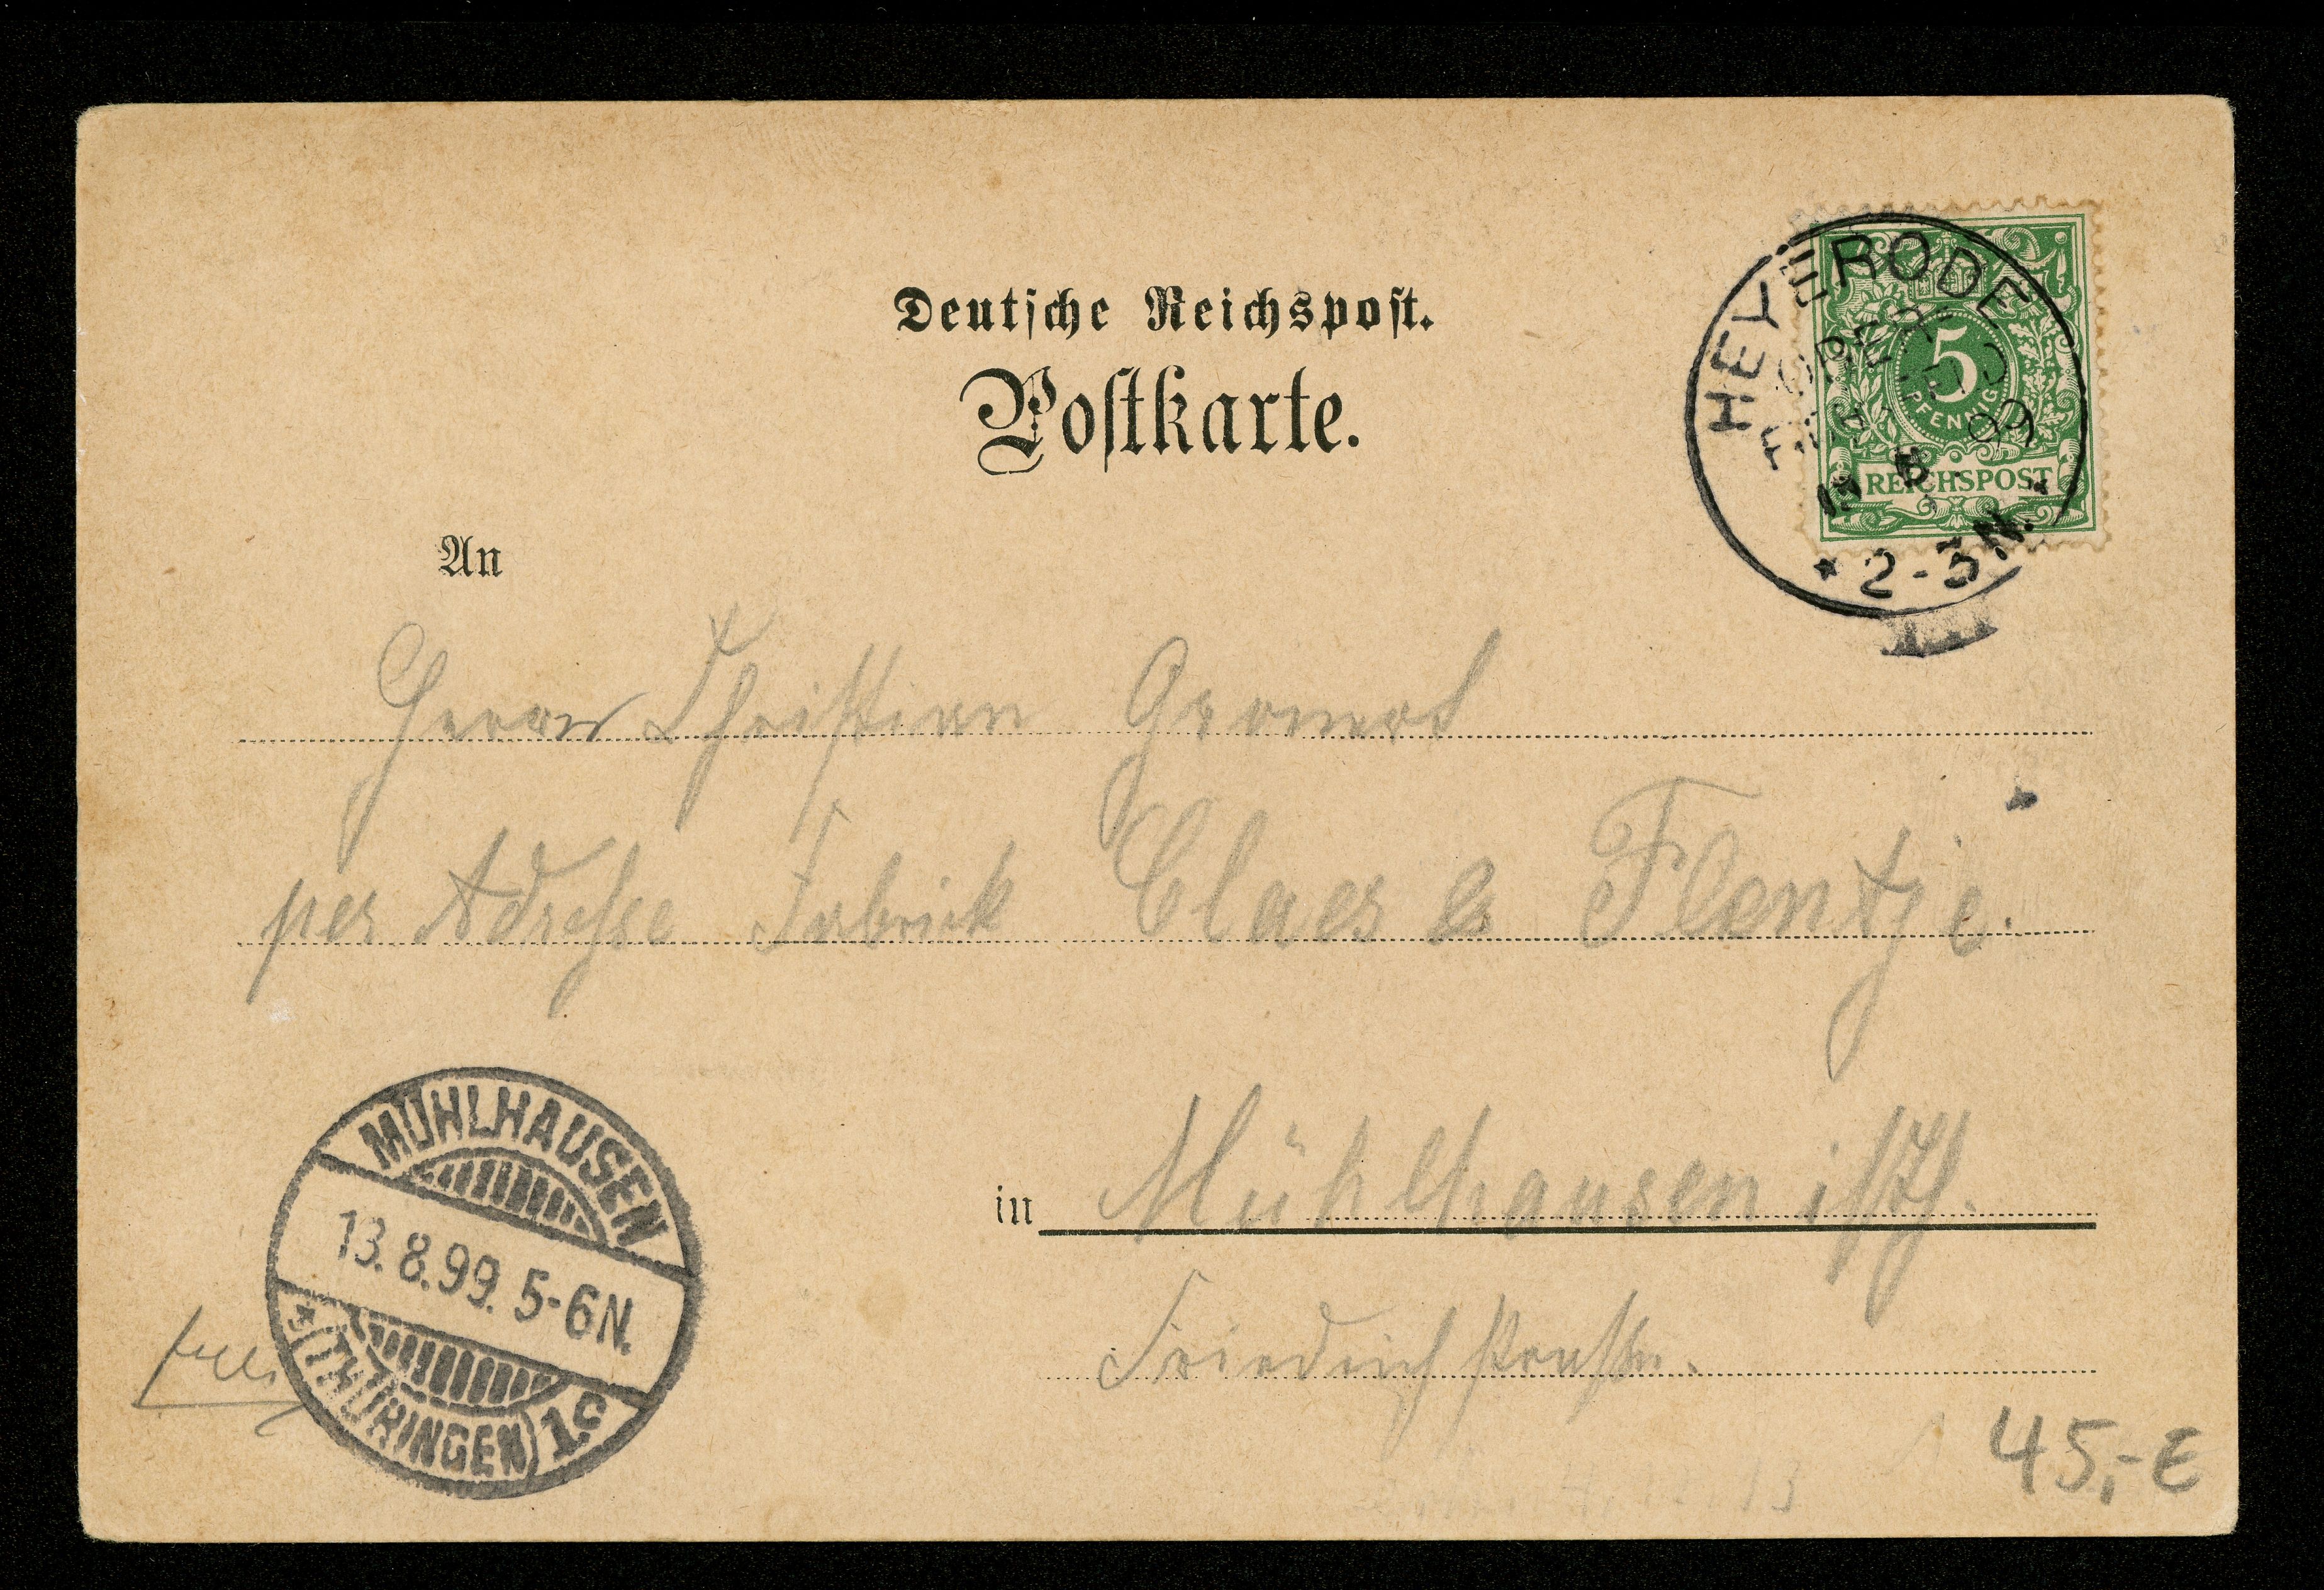 Deutsche Reichspost.
Postkarte.
HEYERODE
5
PFENNIG
REICHSPOST
99
* 2-3N. *
An
Herrn Christian
per Adresse Fabrick Claes & Flentje.
in Mühlhausen i/Th.
Friedrichstraße.
MÜHLHAUSEN
13.8.99. 5-6N.
* (THÜRINGEN) 1.c
45,-E